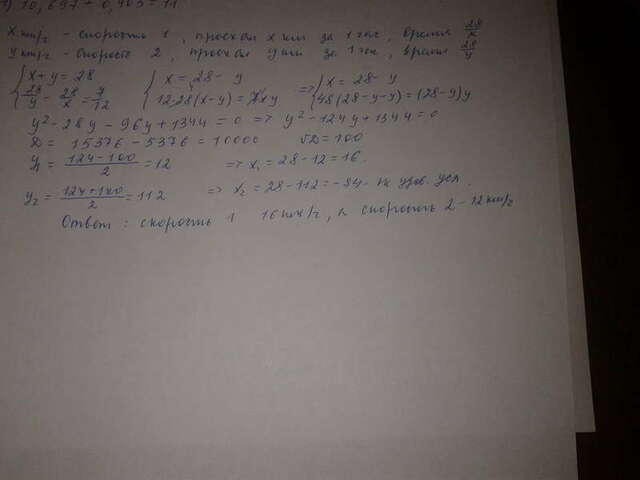 1) 10,697 + 0,403 = 11
x км/г - скорость 1, проехал x км за 1 час, время 28/x
y км/г - скорость 2, проехал y км за 1 час, время 28/y
{ x + y = 28 { x = 28 - y => { x = 28 - y
28/y - 28/x = 7/12 12·28(x - y) = 7xy 48(28 - y - y) = (28 - y)y
y² - 28y - 96y + 1344 = 0 => y² - 124y + 1344 = 0
D = 15376 - 5376 = 10000 √D = 100
y₁ = (124 - 100)/2 = 12 => x₁ = 28 - 12 = 16.
y₂ = (124 + 100)/2 = 112 => x₂ = 28 - 112 = -84 - не удов. усл.
Ответ: скорость 1 16 км/г, а скорость 2 - 12 км/г